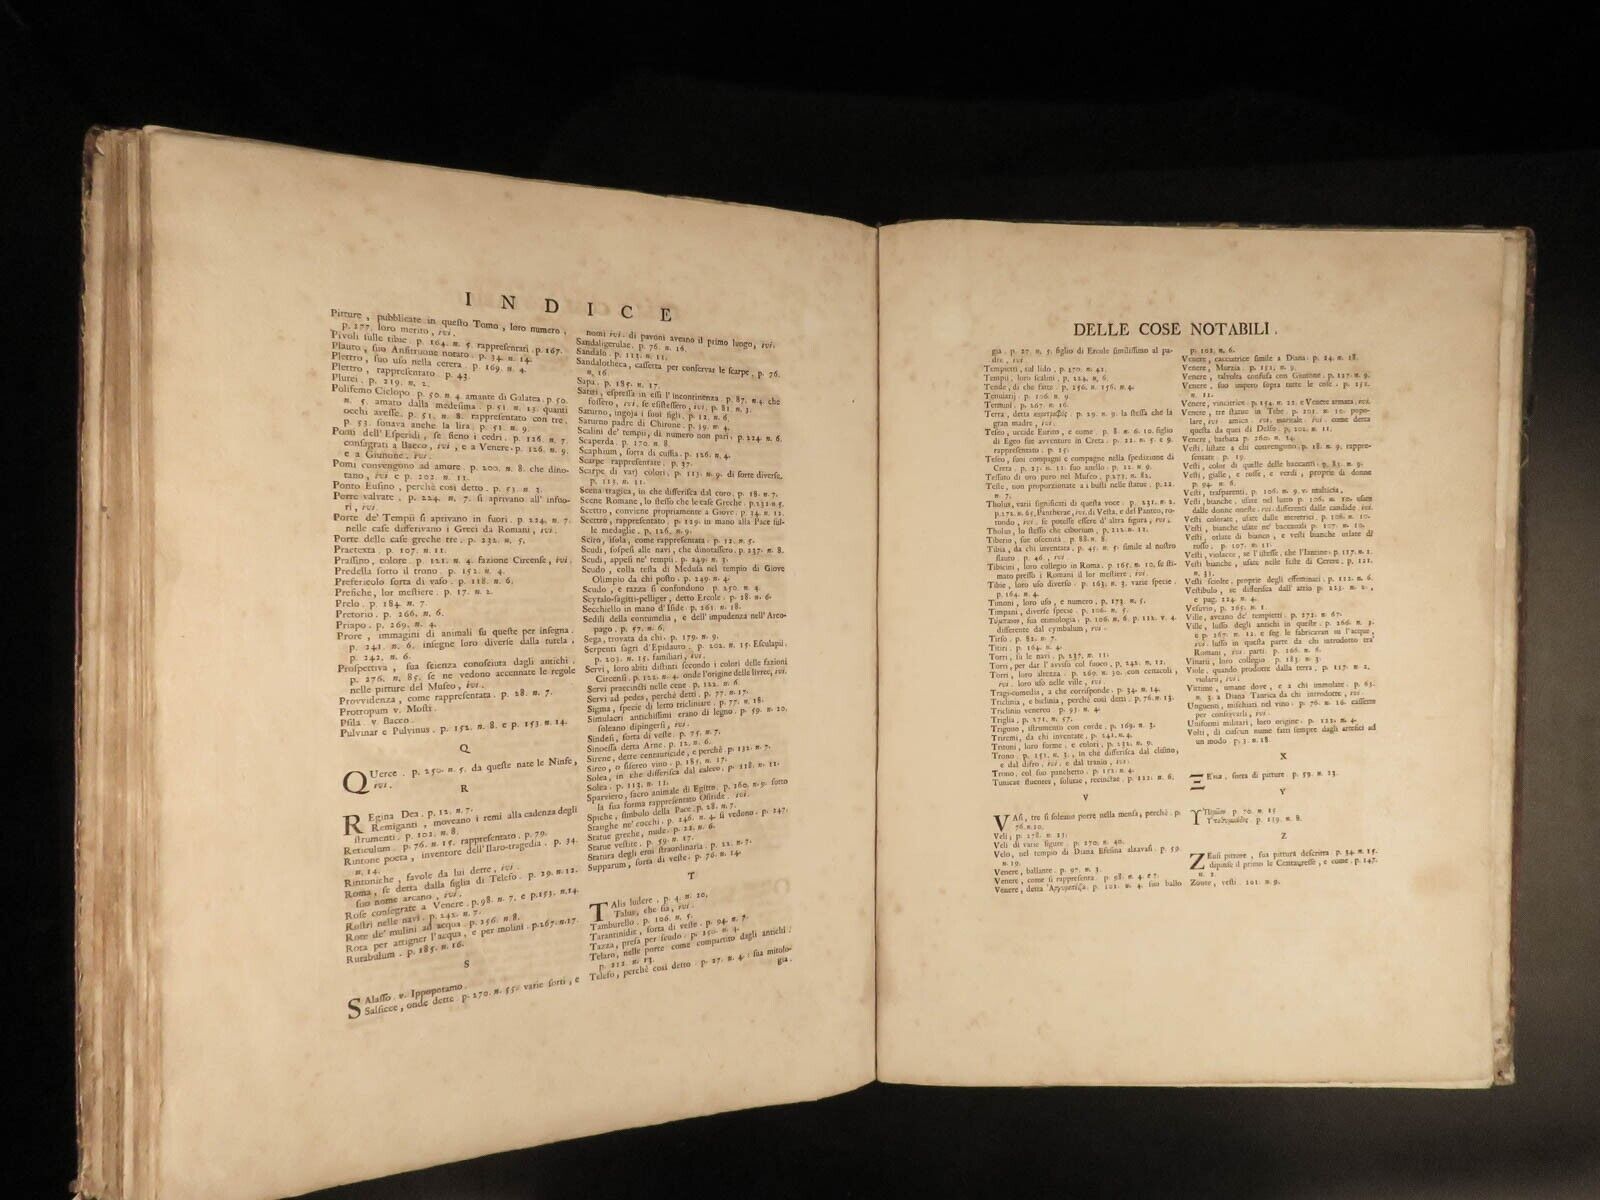 INDICE
Pitture, pubblicate in questo Tomo, loro numero,
p. 277. loro merito, ivi.
Pivoli sulle tibie. p. 164. n. 5. rappresentati. p. 167.
Plauto, suo Anfitruone notato. p. 34. n. 14.
Plettro, suo uso nella cetera. p. 169. n. 4.
Plettro, rappresentato p. 43.
Plutei. p. 219. n. 2.
Polifemo Ciclopo. p. 50. n. 4. amante di Galatea. p. 50.
n. 5. amato dalla medesima. p. 51. n. 15. quanti
occhi avesse. p. 51. n. 8. rappresentato con tre.
p. 53. sonava anche la lira. p. 51. n. 9.
Pomi dell'Esperidi, se sieno i cedri. p. 126. n. 7.
consagrati a Bacco, ivi, e a Venere. p. 126. n. 9.
e a Giunone. ivi.
Pomi convengono ad amore. p. 200. n. 8. che dino-
tano, ivi e p. 202. n. 11.
Ponto Eusino, perchè così detto. p. 53. n. 3.
Porte valvate. p. 224. n. 7. si aprivano all' infuo-
ri, ivi.
Porte de' Tempii si aprivano in fuori. p. 224. n. 7.
nelle case differivano i Greci da Romani, ivi.
Porte delle case greche tre. p. 232. n. 5.
Praetexta. p. 107. n. 11.
Prassino, colore. p. 121. n. 4. fazione Circense, ivi.
Predella sotto il trono. p. 152. n. 4.
Prefericolo sorta di vaso. p. 118. n. 6.
Prefiche, lor mestiere. p. 17. n. 2.
Prelo. p. 184. n. 7.
Pretorio. p. 266. n. 6.
Priapo. p. 269. n. 4.
Prore, immagini di animali su queste per insegna.
p. 241. n. 6. insegne loro diverse dalla tutela,
p. 242. n. 6.
Prospettiva, sua scienza conosciuta dagli antichi.
p. 276. n. 85. se ne vedono accennate le regole
nelle pitture del Museo, ivi.
Provvidenza, come rappresentata. p. 28. n. 7.
Protropum v. Mosti.
Psila v. Bacco.
Pulvinar e Pulvinus. p. 152. n. 8. e p. 153. n. 14.
Q
QUerce. p. 250. n. 5. da queste nate le Ninfe,
ivi.
R
REgina Dea. p. 12. n. 7.
Remiganti, moveano i remi alla cadenza degli
strumenti. p. 102. n. 8.
Reticulum. p. 76. n. 15. rappresentato. p. 79.
Rintone poeta, inventore dell'Ilaro-tragedia. p. 34.
n. 14.
Rintoniche, favole da lui dette, ivi.
Roma, se detta dalla figlia di Telefo. p. 29. n. 12.
suo nome arcano, ivi.
Rose consegrate a Venere. p. 98. n. 7. e p. 153. n. 14.
Rostri nelle navi. p. 242. n. 7.
Rote de' mulini ad acqua. p. 256. n. 8.
Rota per attigner l'acqua, e per molini. p. 267. n. 17.
Rutabulum. p. 185. n. 16.
S
SAlasso. v. Ippopotamo.
Salsicce, onde dette. p. 270. n. 55. varie sorti, e
nomi ivi. di pavoni aveano il primo luogo, ivi.
Sandaligerulae. p. 76. n. 16.
Sandalo. p. 113. n. 11.
Sandalotheca, cassetta per conservar le scarpe. p. 76.
n. 16.
Sapa. p. 185. n. 17.
Satiri, espressa in essi l'incontinenza. p. 87. n. 4. che
fossero, ivi. se esistessero, ivi. p. 81. n. 3.
Saturno, ingoja i suoi figli. p. 12. n. 6.
Saturno padre di Chirone. p. 39. n. 4.
Scalini de' tempii, di numero non pari. p. 224. n. 6.
Scaperda. p. 170. n. 8.
Scaphium, sorta di cuffia. p. 126. n. 4.
Scarpe rappresentate. p. 37.
Scarpe di varj colori. p. 113. n. 9. di sorte diverse,
p. 113. n. 11.
Scena tragica, in che differisca dal coro. p. 18. n. 7.
Scene Romane, lo stesso che le case Greche. p. 231. n. 5.
Scettro, conviene propriamente a Giove. p. 34. n. 12.
Scettro, rappresentato. p. 129. in mano alla Pace sul-
le medaglie. p. 126. n. 9.
Sciro, isola, come rappresentata. p. 12. n. 5.
Scudi, sospesi alle navi, che dinotassero. p. 237. n. 8.
Scudi, appesi ne' tempii. p. 249. n. 3.
Scudo, colla testa di Medusa nel tempio di Giove
Olimpio da chi posto. p. 249. n. 4.
Scudo, e tazza si confondono. p. 250. n. 4.
Scytalo-sagitti-pelliger, detto Ercole. p. 28. n. 6.
Secchiello in mano d'Iside. p. 261. n. 18.
Sedili della contumelia, e dell' impudenza nell'Areo-
pago. p. 57. n. 6.
Sega, trovata da chi. p. 179. n. 9.
Serpenti sagri d'Epidauro. p. 202. n. 15. Esculapii.
p. 203. n. 15. familiari, ivi.
Servi, loro abiti distinti secondo i colori delle fazioni
Circensi. p. 122. n. 4. onde l'origine delle livree, ivi.
Servi praecincti nelle cene. p. 122. n. 6.
Servi ad pedes, perchè detti. p. 77. n. 17.
Sigma, specie di letto tricliniare. p. 77. n. 18.
Simulacri antichissimi erano di legno. p. 59. n. 20.
soleano dipingersi, ivi.
Sindesi, sorta di veste. p. 75. n. 7.
Sinoessa detta Arne. p. 12. n. 6.
Sirene, dette centauricide, e perchè. p. 132. n. 7.
Sireo, o sisereo vino. p. 185. n. 17.
Solea, in che differisca dal calceo. p. 118. n. 11.
Solea. p. 113. n. 11.
Sparviero, sacro animale di Egitto. p. 260. n. 9. sotto
la sua forma rappresentato Osiride. ivi.
Spiche, simbolo della Pace. p. 28. n. 7.
Stanghe ne' cocchi. p. 246. n. 4. si vedono. p. 247.
Statue greche, nude. p. 22. n. 6.
Statue vestite. p. 59. n. 17.
Statura degli eroi straordinaria. p. 22. n. 7.
Supparum, sorta di veste. p. 76. n. 14.
T
TAlis ludere. p. 4. n. 20.
Talus, che sia, ivi.
Tamburello. p. 106. n. 5.
Tarantinidie, sorta di veste. p. 94. n. 7.
Tazza, presa per scudo. p. 250. n. 4.
Telaro, nelle porte come compartito dagli antichi.
p. 212. n. 13.
Telefo, perchè così detto. p. 27. n. 4. sua mitolo-
gia.
DELLE COSE NOTABILI.
gia. p. 27. n. 5. figlio di Ercole similissimo al pa-
dre, ivi.
Tempietti, sul lido. p. 270. n. 41.
Tempii, loro scalini. p. 224. n. 6.
Tende, di che fatte. p. 256. n. 156. n. 4.
Tentiarij. p. 106. n. 9.
Termini. p. 267. n. 16.
Terra, detta κυροτροφὸς. p. 29. n. 9. la stessa che la
gran madre, ivi.
Teseo, uccide Eurito, e come. p. 8. n. 6. 10. figlio
di Egeo sue avventure in Creta. p. 22. n. 5. e 9.
rappresentato p. 15.
Teseo, suoi compagni e compagne nella spedizione di
Creta. p. 23. n. 11. suo anello. p. 22. n. 9.
Tessuto di oro puro nel Museo. p. 273. n. 82.
Teste, non proporzionate a i busti nelle statue. p. 22.
n. 7.
Tholus, varii significati di questa voce. p. 231. n. 2.
p. 272. n. 65. Pantherae, ivi. di Vesta, e del Panteo, ro-
tondo, ivi. se potesse essere d'altra figura, ivi.
Tholus, lo stesso che ciborium, p. 212. n. 11.
Tiberio, sue oscenità. p. 88. n. 8.
Tibia, da chi inventata. p. 45. n. 5. simile al nostro
flauto. p. 46. ivi.
Tibicini, loro collegio in Roma. p. 165. n. 10. se sti-
mato presso i Romani il lor mestiere, ivi.
Tibie, loro uso diverso. p. 163. n. 3. varie specie.
p. 164. n. 4.
Timoni, loro uso, e numero. p. 173. n. 5.
Timpani, diverse specie. p. 106. n. 5.
Τύμπανον, sua etimologia. p. 106. n. 6. p. 112. v. 4.
differente dal cymbalum, ivi.
Tirso. p. 82. n. 7.
Titiri. p. 164. n. 4.
Torri, su le navi. p. 237. n. 11.
Torri, per dar l' avviso col fuoco, p. 242. n. 12.
Torri, loro altezza. p. 269. n. 30. con cenacoli,
ivi. loro uso nelle ville, ivi.
Tragi-comedia, a che corrisponde. p. 34. n. 14.
Triclinia, e biclinia, perchè così detti. p. 76. n. 13.
Triclinio venereo. p. 93. n. 4.
Triglia, p. 271. n. 57.
Trigono, istrumento con corde. p. 169. n. 3.
Triremi, da chi inventate. p. 241. n. 4.
Tritoni, loro forme, e colori. p. 232. n. 9.
Trono. p. 151. n. 3. in che differisca dal clismo,
e dal difro, ivi. e dal tranio, ivi.
Trono, col suo panchetto. p. 152. n. 4.
Tunicae fluentes, solutae, recinctae. p. 122. n. 6.
V
VAsi, tre si soleano porre nella mensa, perchè. p.
76. n. 20.
Veli. p. 278. n. 15.
Veli di varie figure. p. 270. n. 40.
Velo, nel tempio di Diana Efesina alzavasi. p. 59.
n. 19.
Venere, ballante. p. 97. n. 3.
Venere, come si rappresenta. p. 98. n. 4. e 7.
Venere, detta p. 102. n. 4. suo ballo
p. 102. n. 6.
Venere, cacciatrice simile a Diana. p. 24. n. 18.
Venere, Murzia. p. 151. n. 9.
Venere, talvolta confusa con Giunone. p. 127. n. 9.
Venere, suo impero sopra tutte le cose. p. 152.
n. 11.
Venere, vincitrice. p. 154. n. 22. e Venere armata, ivi.
Venere, tre statue in Tebe. p. 201. n. 10. popo-
lare, ivi. amica. ivi. maritale. ivi. come detta
questa da quei di Delfo. p. 202. n. 11.
Venere, barbata p. 260. n. 14.
Vesti, listate a chi convengono. p. 18. n. 9. rappre-
sentate. p. 19.
Vesti, color di quelle delle baccanti. p. 83. n. 9.
Vesti, gialle, e rosse, e verdi, proprie di donne
p. 94. n. 6.
Vesti, trasparenti. p. 106. n. 9. v. multicia.
Vesti, bianche, usate nel lutto p. 106. n. 10. usate
dalle donne oneste. ivi. differenti dalle candide. ivi.
Vesti colorate, usate dalle meretrici. p. 106. n. 10.
Vesti, bianche usate ne' baccanali p. 107. n. 10.
Vesti, orlate di bianco, e vesti bianche orlate di
rosso. p. 107. n. 11.
Vesti, violacee, se l'istesse, che l'Iantine. p. 117. n. 2.
Vesti bianche, usate nelle feste di Cerere. p. 121.
n. 3.
Vesti sciolte, proprie degli effeminati. p. 122. n. 6.
Vestibulo, se differisca dall' atrio p. 223. n. 2.,
e pag. 224. n. 4.
Vesuvio, p. 265. n. 1.
Ville, aveano de' tempietti. p. 272. n. 67.
Ville, lusso degli antichi in queste. p. 266. n. 3.
e p. 267. n. 12. e seg. le fabbricavan su l'acque,
ivi. lusso in questa parte da chi introdotto tra'
Romani, ivi. parti. p. 266. n. 6.
Vinarii, loro collegio. p. 183. n. 3.
Viole, quando prodotte dalla terra. p. 117. n. 2.
violarii, ivi.
Vittime, umane dove, e a chi immolate. p. 63.
n. 3. a Diana Taurica da chi introdotte, ivi.
Unguenti, mischiati nel vino. p. 76. n. 16. cassette
per conservarli, ivi.
Uniformi militari, loro origine. p. 122. n. 4.
Volti, di ciascun nume fatti sempre dagli artefici ad
un modo. p. 3. n. 18.
X
ΞEnia, sorta di pitture. p. 59. n. 13.
Y
p. 70. n. 15
p. 159. n. 8.
Z
ZEusi pittore, sua pittura descritta. p. 34. n. 15.
dipinse il primo le Centauresse, e come. p. 147.
n. 2.
Zonte, vesti. 101. n. 9.